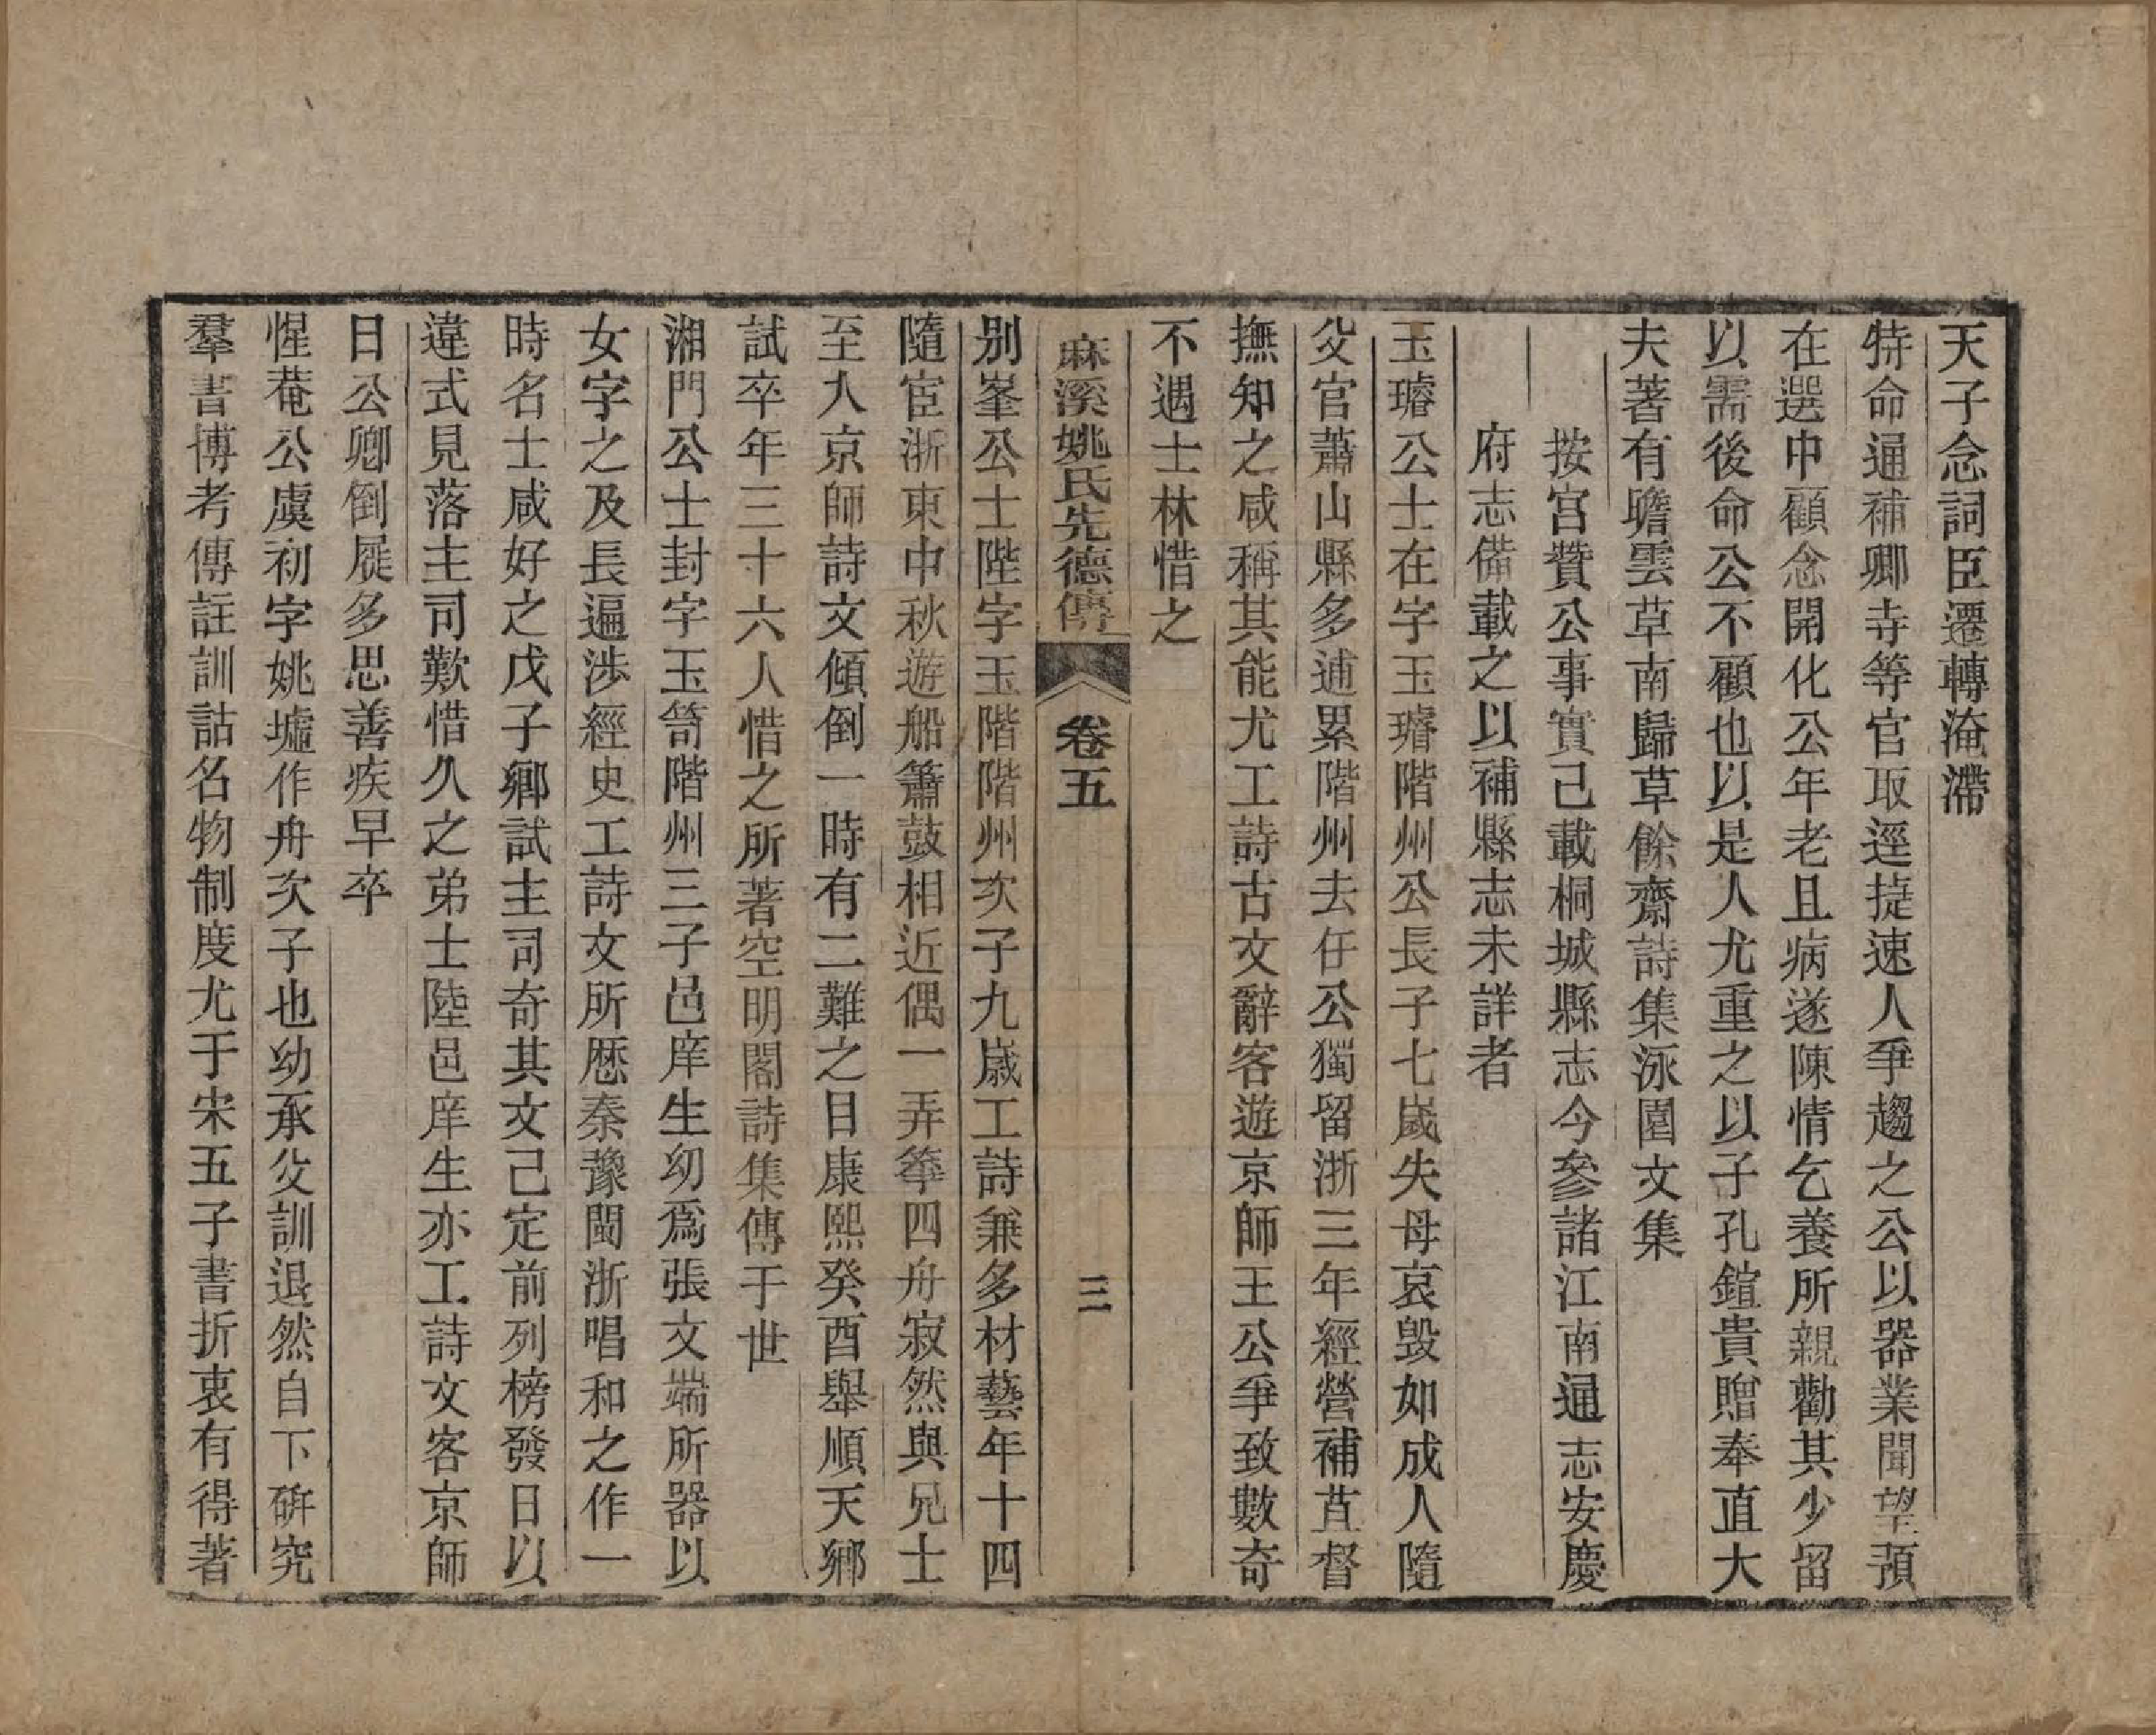 天子念詞臣遷轉淹滯
特命通補卿寺等官取逕捷速人爭趨之公以器業聞望預
在選中顧念開化公年老且病遂陳情乞養所親勸其少留
以需後命公不顧也以是人尤重之以子孔鍹貴贈奉直大
夫著有瞻雲草南歸草餘齋詩集泳園文集
按宮贊公事實已載桐城縣志今參諸江南通志安慶
府志備載之以補縣志未詳者
玉璿公士在字玉璿階州公長子七歲失母哀毀如成人隨
父官蕭山縣多逋累階州去任公獨留浙三年經營補苴督
撫知之咸稱其能尤工詩古文辭客遊京師王公爭致數奇
不遇士林惜之
麻溪姚氏先德傳 卷五 三
別峯公士陛字玉階階州次子九歲工詩兼多材藝年十四
隨宦浙東中秋遊船簫鼓相近偶一弄箏四舟寂然與兄士
至入京師詩文傾倒一時有二難之目康熙癸酉舉順天鄉
試卒年三十六人惜之所著空明閣詩集傳于世
湘門公士封字玉笥階州三子邑庠生幼爲張文端所器以
女字之及長遍涉經史工詩文所歷秦豫閩浙唱和之作一
時名士咸好之戊子鄉試主司奇其文已定前列榜發日以
違式見落主司歎惜久之弟士陸邑庠生亦工詩文客京師
日公卿倒屣多思善疾早卒
惺菴公虞初字姚墟作舟次子也幼承父訓退然自下研究
羣書博考傳註訓詁名物制度尤于宋五子書折衷有得著